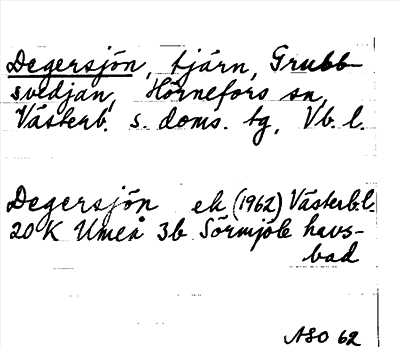 Degersjön, tjärn, Grubb-
svedjan, Hörnefors sn,
Västerb. s. doms. tg, Vb. l.
Degersjön ek (1962) Västerb. l.
20 K Umeå 3b Sörmjöle havs-
bad
ASO 62